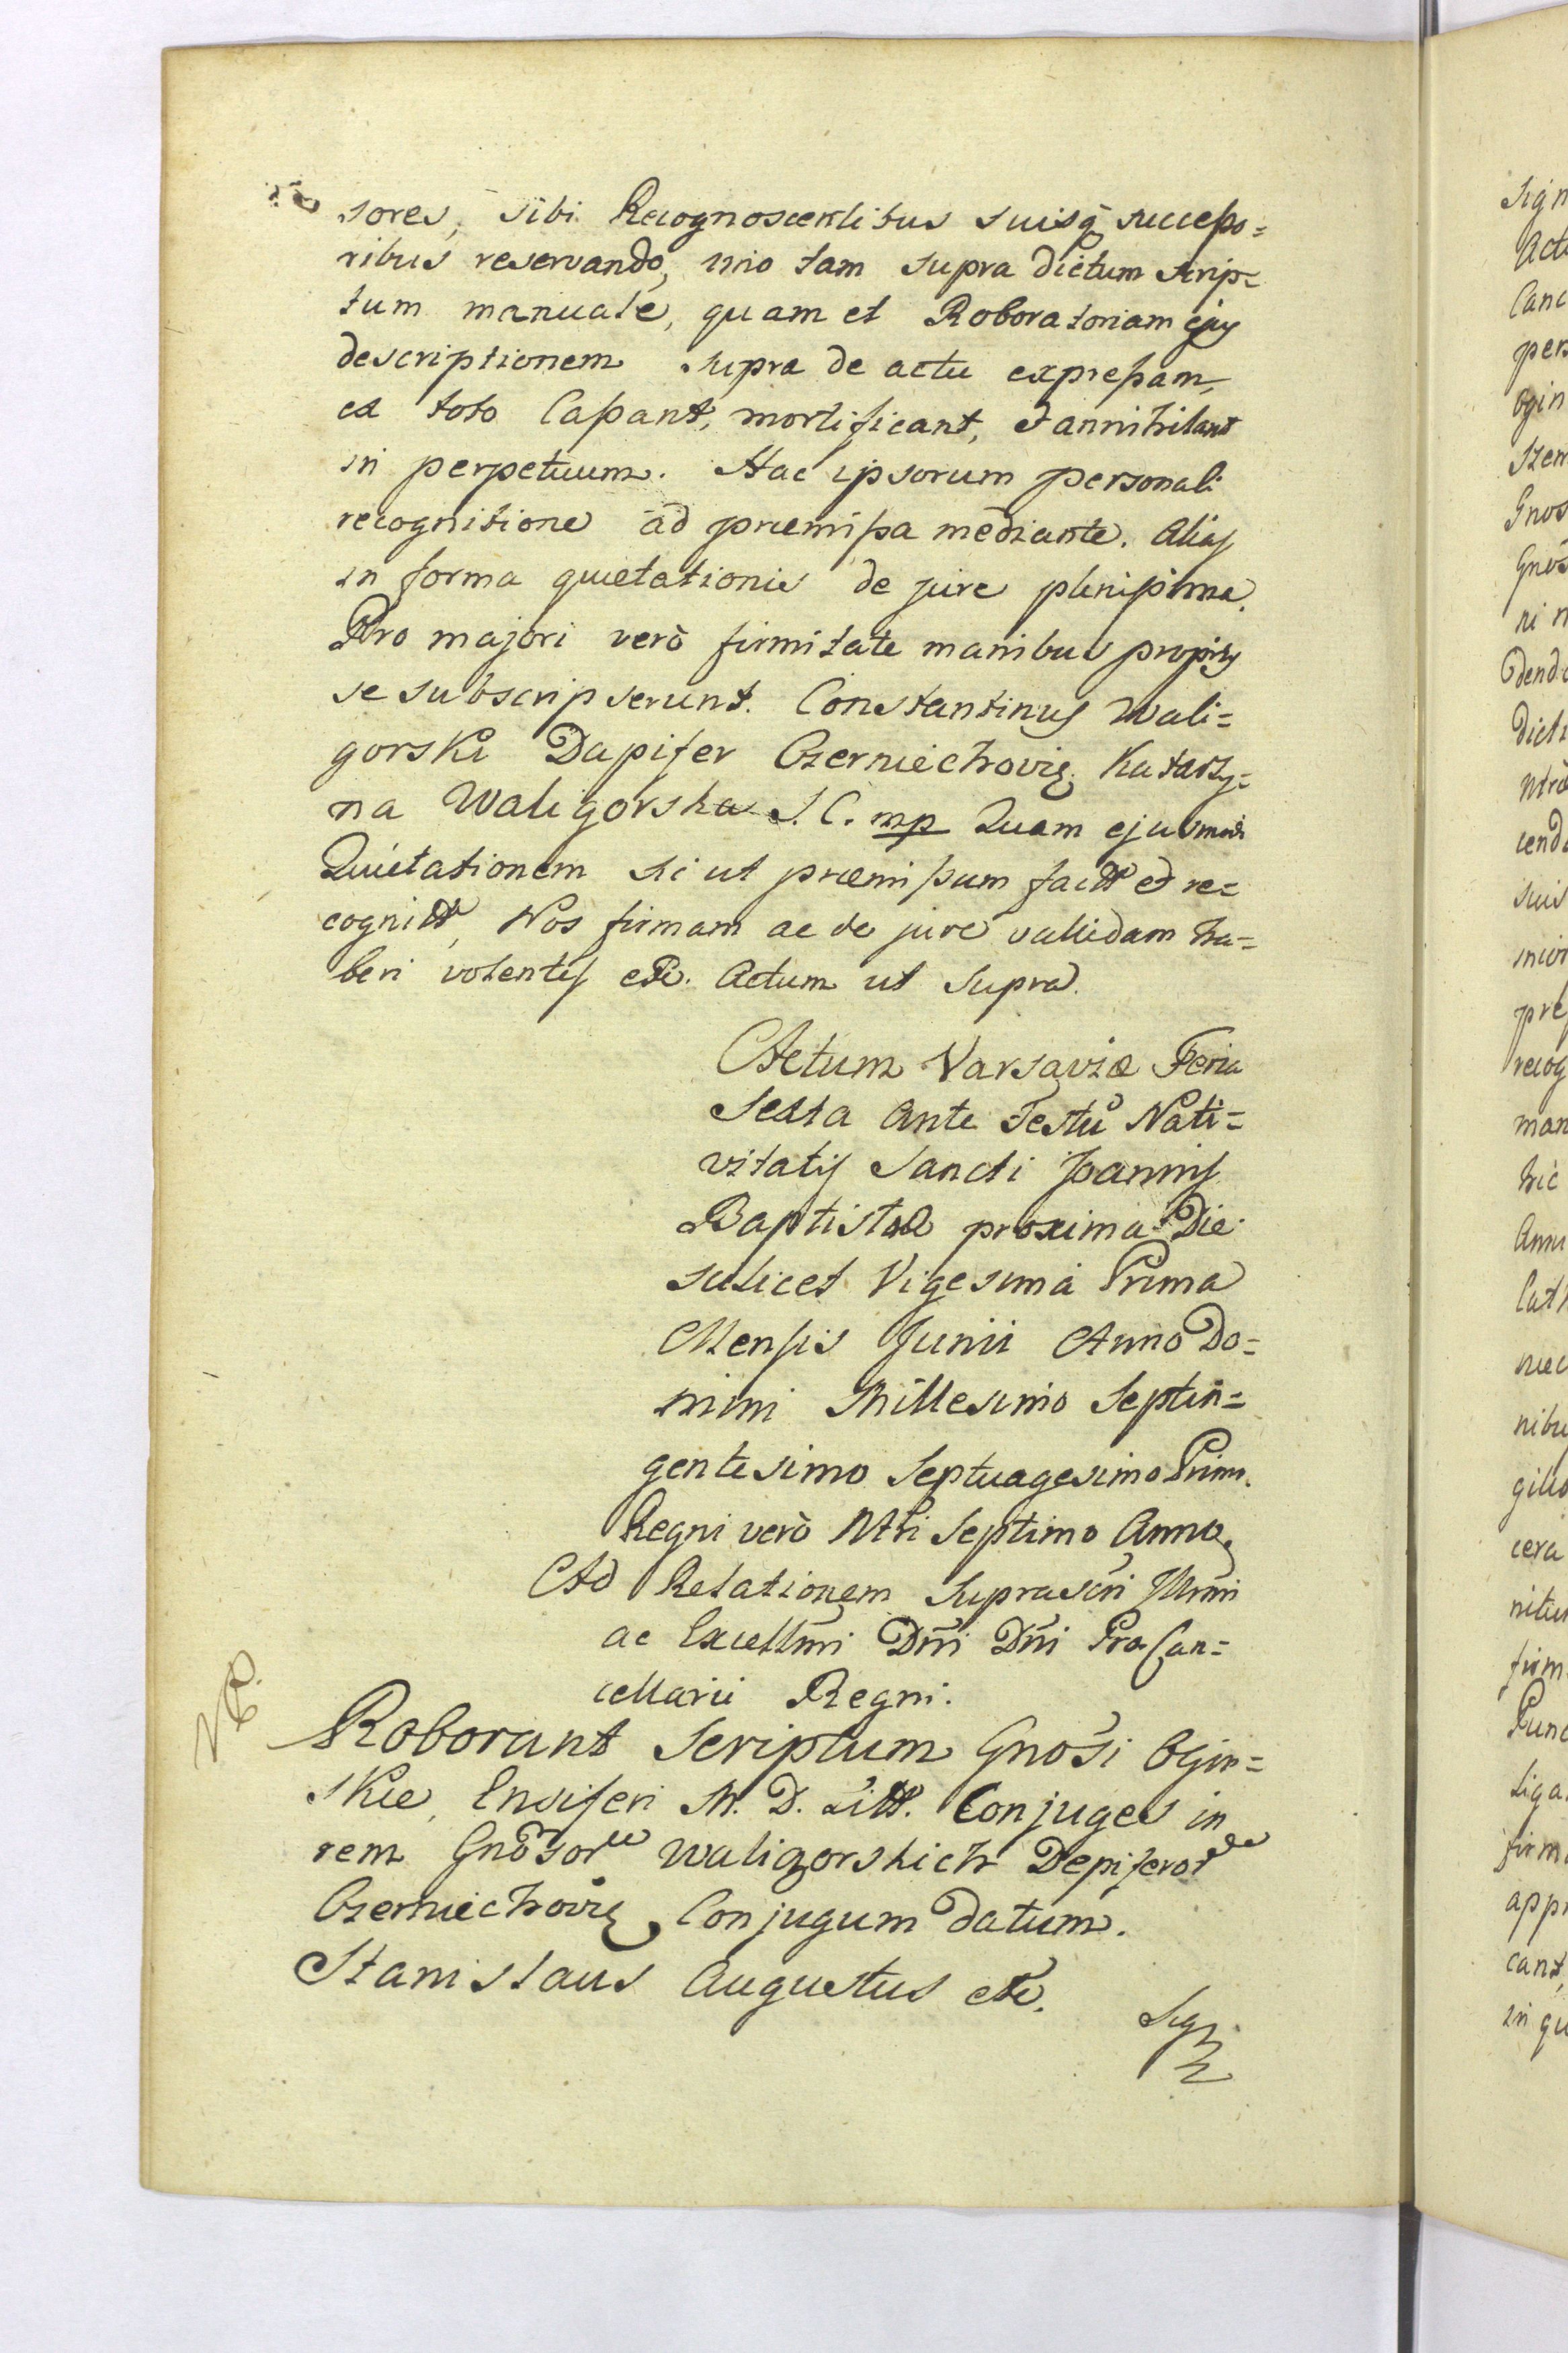 sores, sibi Recognoscentibus suisq̃ successo=
ribus reservando, imo tam supra dictum scrip=
tum manuale, quam et Roboratoriam ejus
descriptionem supra de actu expressam,
ex toto Cassant, mortificant, et annihilant
in perpetuum. Hac ipsorum personali
recognitione ad præmissa mediante. Alias
in forma quietationis de jure plenissima.
Pro majori verò firmitate manibus propriis
se subscripserunt. Constantinus Wali=
gorski Dapifer Czerniechoviæ Katarzy=
na Waligorska S. C. mp Quam ejusmodi
Quietationem sic ut præmissum factt et re=
cognitt, Nos firmam ac de jure vallidam ha=
beri volentes etc. Actum ut supra.
Actum Varsaviæ Feria
Sexta Ante Festũ Nati=
vitatis Sancti Joannis
Baptistæ proxima Die
scilicet Vigesima Prima
Mensis Junii Anno Do=
mini Millesimo Septin=
gentesimo Septuagesimo Primo.
Regni verò Ntri Septimo Anno
Ad Relationem Suprascri Illmi
ac Excellmi Dñi Dñi Pro Can=
cellarii Regni.
NB.
Roborant Scriptum Gnosi Ogin=
skie, Ensiferi M. D. Litt. Conjuges in
rem Gnosor Waligorskich Depiferor
Czerniechoviæ Conjugum datum.
Stanislaus Augustus etc.
Sig
Sign
Actu
Canc
pers
Ogin
Gnos
Gnos
ni n
Dend
Dict
cend
suis
pre
recog
man
hic
Cath
nec
nibu
cera
nitur
firm
Punc
Liga
firm
app
cant,
in qu